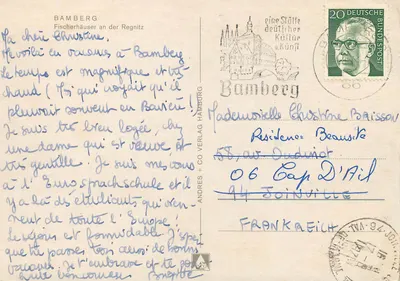 BAMBERG
Fischerhäuser an der Regnitz
Ma chère Christine,
Me voilà en vacances à Bamberg
le temps est magnifique et très
chaud (Toi qui croyait qu'il
pleuvait souvent en Bavière!)
Je suis très bien logée, chez
une dame qui est veuve et
très gentille. Je suis mes cours
à l'Eurosprachschule et il
y a là des étudiants qui vien-
nent de toute l'Europe!
Le séjour est formidable. J'espère
que tu passes toi aussi de bonnes
vacances. Je t'embrasse et te
Brigitte
ANDRES + CO VERLAG HAMBURG
eine Stätte
deutscher
Kultur
Bamberg
20
DEUTSCHE BUNDESPOST
Mademoiselle Christine Brisson
Résidence Beausite
58, av Oudinot
06 Cap D'Ail
94 JOINVILLE
FRANKREICH